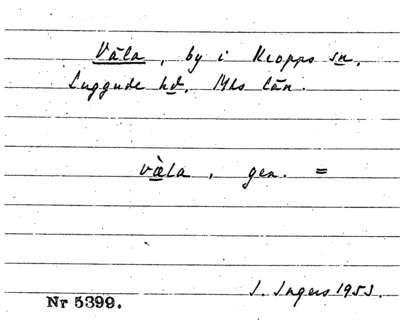 Våla, by i Kropps sn,
Luggude hd, Mhs län.
vàla, gen. =
I. Ingers 1953.
Nr 5399.